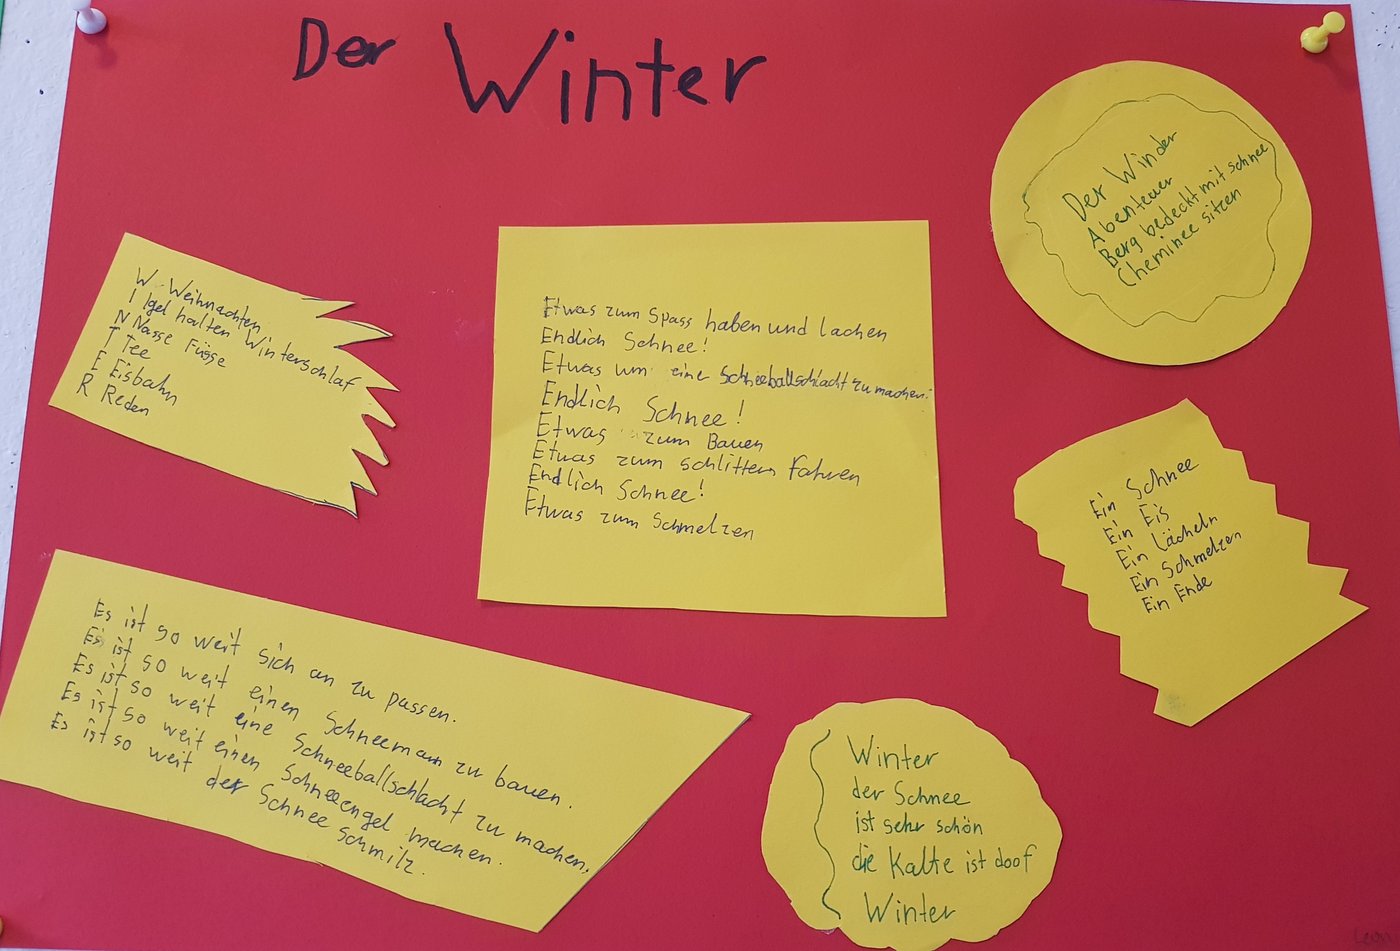 Der Winter
W Weihnachten
I Igel halten Winterschlaf
N Nasse Füsse
T Tee
E Eisbahn
R Reden
Etwas zum Spass haben und lachen
Endlich Schnee!
Etwas um eine Schneeballschlacht zu machen.
Endlich Schnee!
Etwas zum Bauen
Etwas zum schlitten fahren
Endlich Schnee!
Etwas zum Schmelzen
Der Winder
Abenteuer
Berg bedeckt mit schnee
Cheminee sitzen
Ein Schnee
Ein Eis
Ein Lächeln
Ein Schmelzen
Ein Ende
Es ist so weit sich an zu passen.
Es ist so weit einen Schneemann zu bauen.
Es ist so weit eine Schneeballschlacht zu machen.
Es ist so weit einen Schneeengel machen.
Es ist so weit der Schnee schmilz.
Winter
der Schnee
ist sehr schön
die Kalte ist doof
Winter